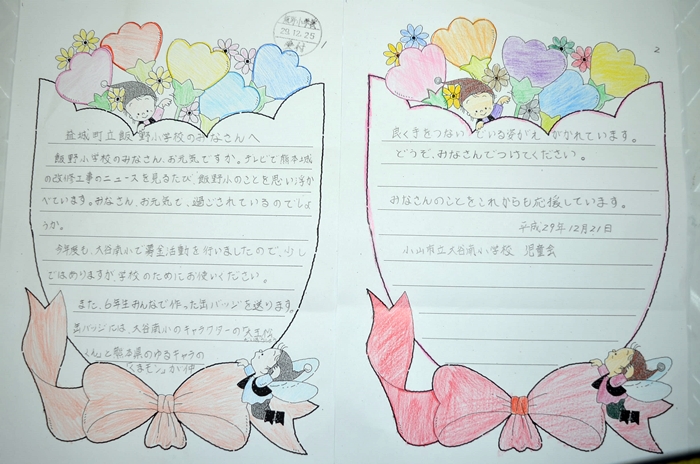 飯野小学校
29.12.25
益城町立飯野小学校のみなさんへ
飯野小学校のみなさん、お元気ですか。テレビで熊本城
の改修工事のニュースを見るたび、飯野小のことを思い浮か
べています。みなさん、お元気で、過ごされているのでしょ
うか。
今年度も、大谷南小で募金活動を行いましたので、少し
ではありますが、学校のためにお使いください。
また、6年生みんなで作った缶バッジを送ります。
缶バッジには、大谷南小のキャラクターの「
くん」と熊本県のゆるキャラの
「くまモン」が仲
2
良く手をつないでいる姿がえがかれています。
どうぞ、みなさんでつけてください。
みなさんのことをこれからも応援しています。
平成29年12月21日
小山市立大谷南小学校 児童会